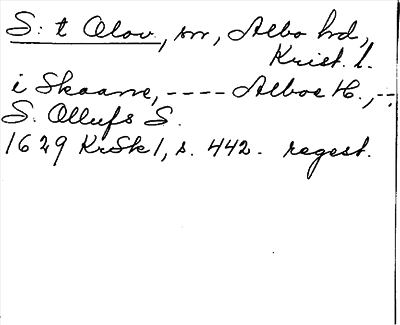 S: t Olov, sn, Albo hd,
Krist. l.
i Skaane, ---- Alboe H., --;
S. Ollufs S.
1629 KrSk 1, s. 442. regest.